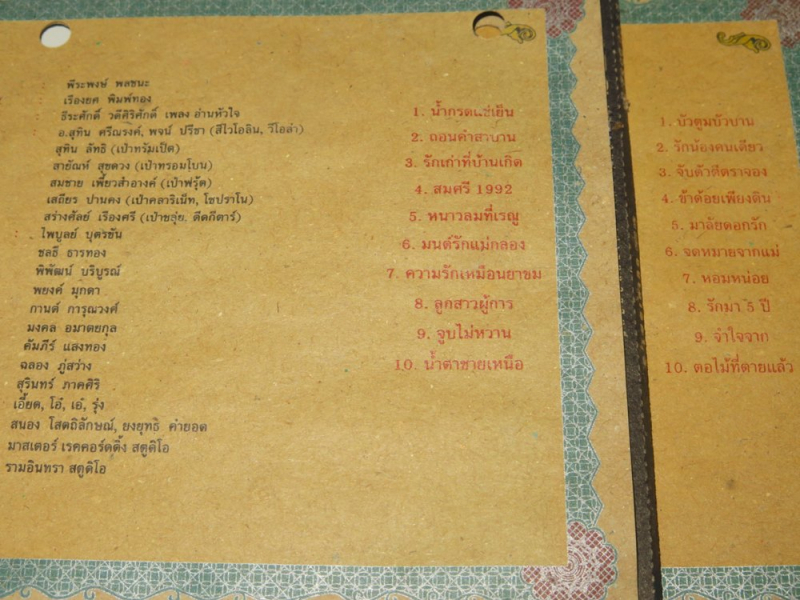 พีระพงษ์ พลชนะ
เรืองยศ พิมพ์ทอง
ธีระศักดิ์ วดีศิริศักดิ์ เพลง อ่านหัวใจ
อ.สุทิน ศรีณรงค์, พจน์ ปรีชา (สีไวโอลิน, วีโอล่า)
สุทิน ลัทธิ (เป่าทรัมเป็ต)
สายัณห์ สุขดวง (เป่าทรอมโบน)
สมชาย เพี้ยวสำอางค์ (เป่าฟรุ้ต)
เสถียร ปานคง (เป่าคลาริเน็ท, โซปราโน)
สร่างศัลย์ เรืองศรี (เป่าขลุ่ย, ดีดกีตาร์)
ไพบูลย์ บุตรขัน
ชลธี ธารทอง
พิพัฒน์ บริบูรณ์
พยงค์ มุกดา
กานต์ การุณวงศ์
มงคล อมาตยกุล
คัมภีร์ แสงทอง
ฉลอง ภู่สว่าง
สุรินทร์ ภาคศิริ
เอี้ยด, โอ๋, เอ๋, รุ่ง
สนอง โสตถิลักษณ์, ยงยุทธิ คำยอด
มาสเตอร์ เรคคอร์ดดิ้ง สตูดิโอ
รามอินทรา สตูดิโอ
1. น้ำกรดแช่เย็น
2. ถอนคำสาบาน
3. รักเก่าที่บ้านเกิด
4. สมศรี 1992
5. หนาวลมที่เรณู
6. มนต์รักแม่กลอง
7. ความรักเหมือนยาขม
8. ลูกสาวผู้การ
9. จูบไม่หวาน
10. น้ำตาชายเหนือ
1. บัวตูมบัวบาน
2. รักน้องคนเดียว
3. จับตัวตีตราจอง
4. ข้าด้อยเพียงดิน
5. มาลัยดอกรัก
6. จดหมายจากแม่
7. หอมหน่อย
8. รักมา 5 ปี
9. จำใจจาก
10. ตอไม้ที่ตายแล้ว